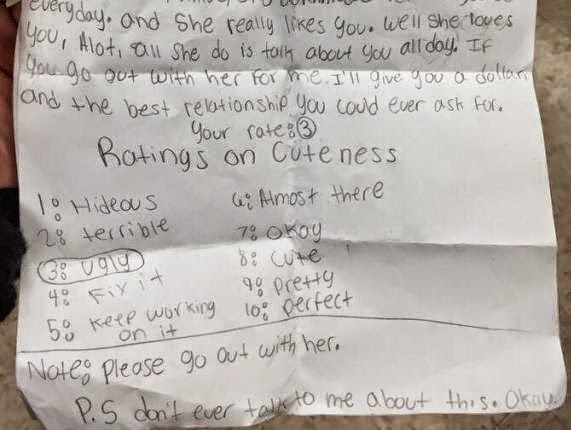 everyday. and She really likes you. Well she loves
you, Alot, all she do is talk about you all day. If
you go out with her for me I'll give you a dollar
and the best relationship you could ever ask for.
Your rate: 3
Ratings on Cuteness
1: Hideous
2: terrible
3: Ugly
4: Fix it
5: Keep working
on it
6: Almost there
7: Okay
8: Cute
9: Pretty
10: Perfect
Note: please go out with her.
P.S don't ever talk to me about this. Okay